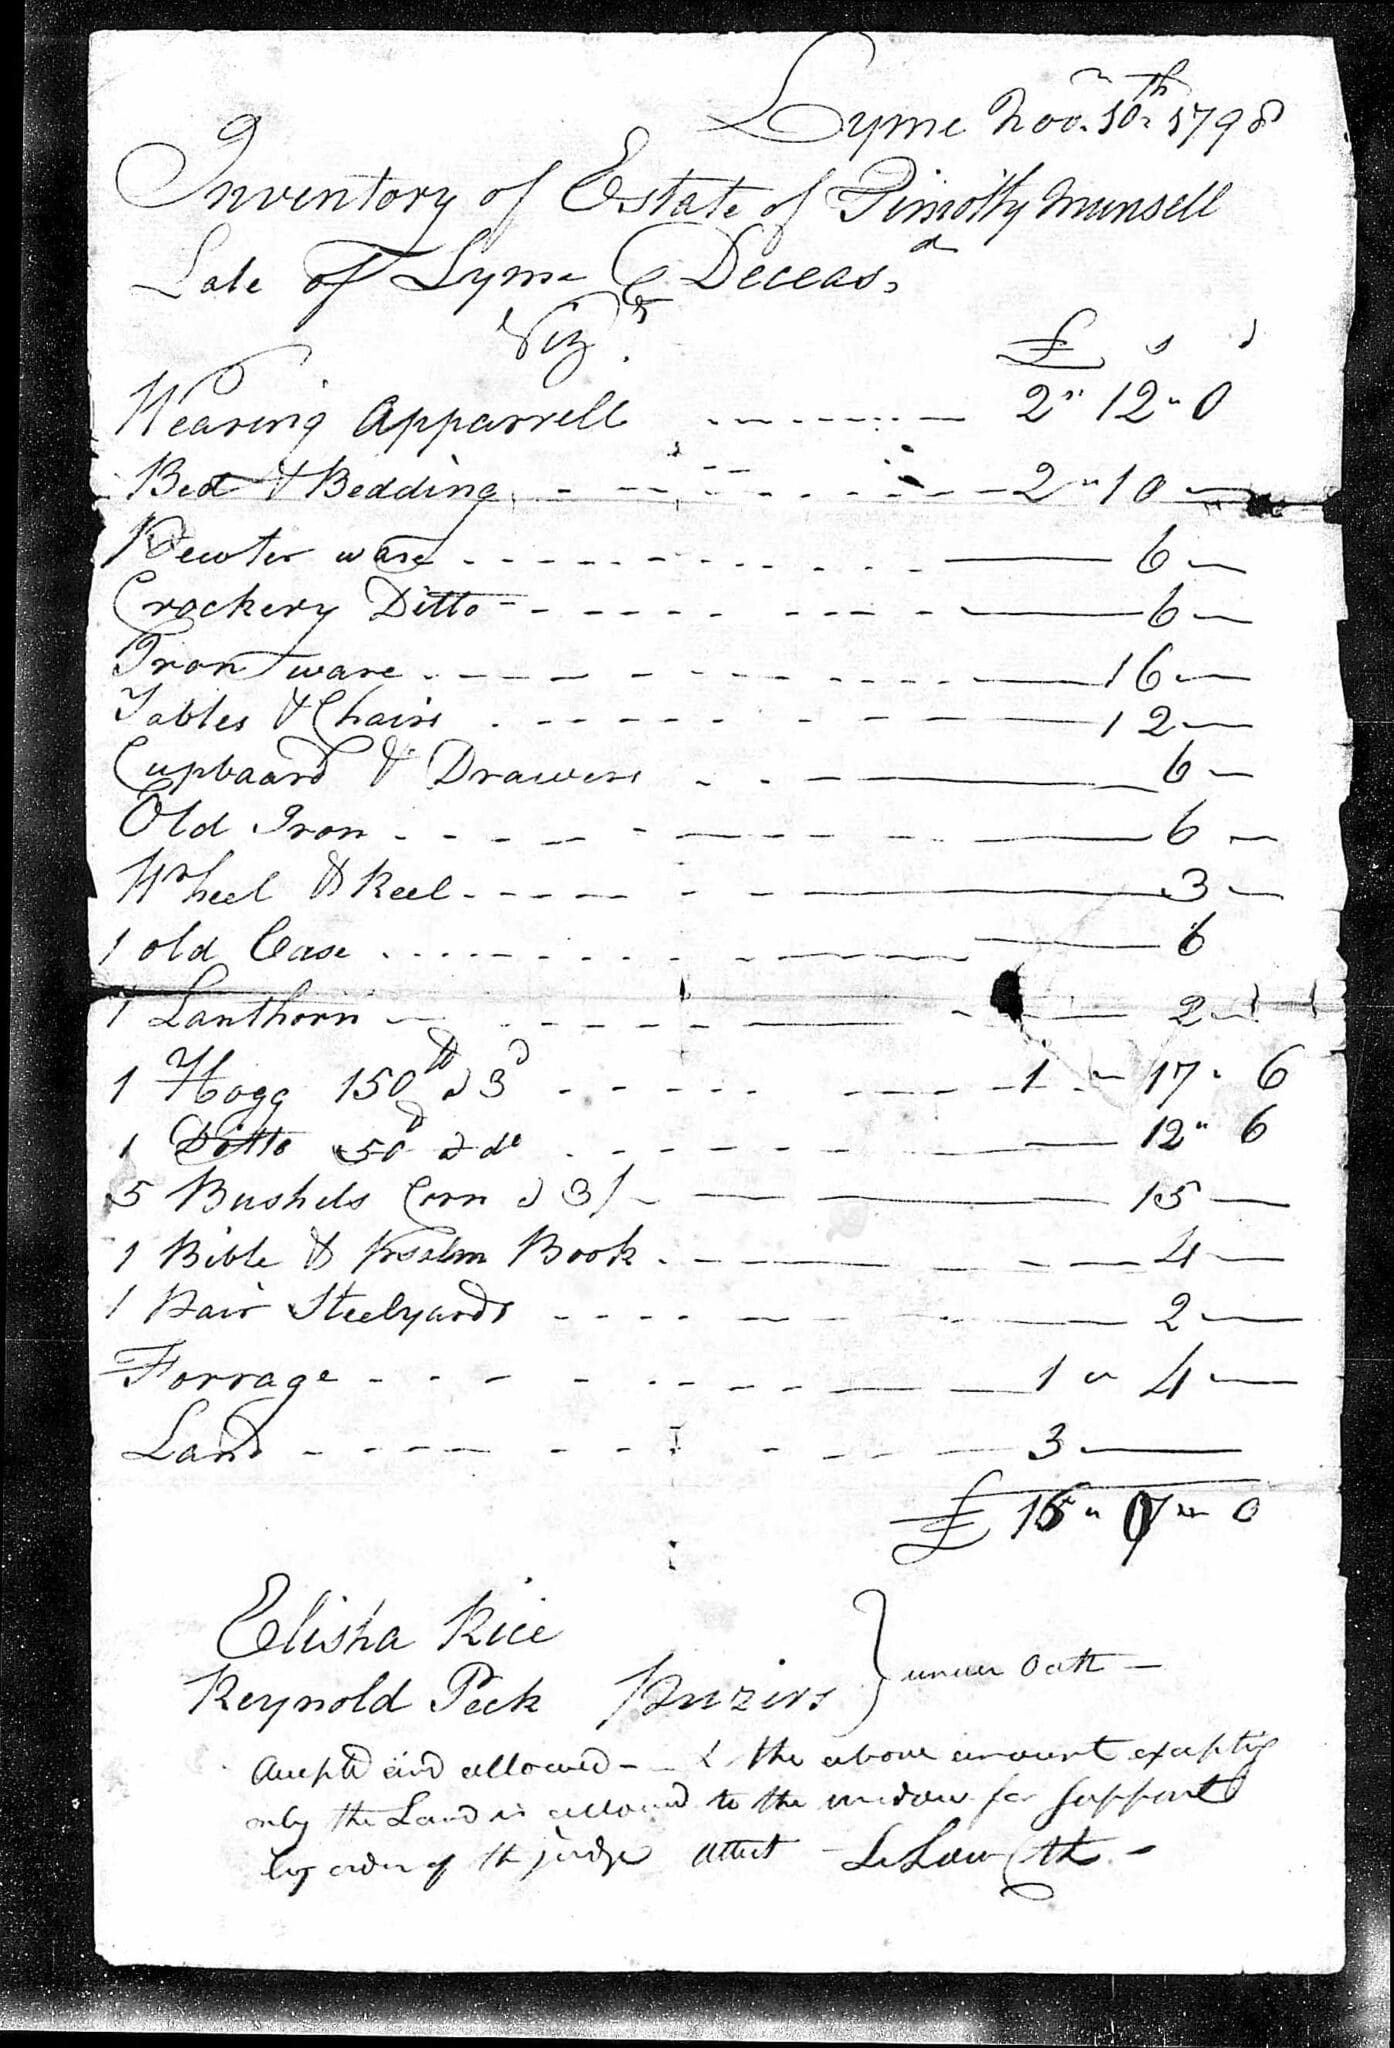 Lyme Novm. 10th. 1798
Inventory of Estate of Timothy Munsell
Late of Lyme Deceasd.
Viz.
£ s d
Wearing Apparrell 2" 12" 0
Bed & Bedding 2" 10 —
Pewter ware 6 —
Crockery Ditto 6 —
Iron ware 16 —
Tables & Chairs 12 —
Cupbaard & Drawers 6 —
Old Iron 6 —
Wheel & Reel 3 —
1 old Case 6
1 Lanthorn 2 —
1 Hogg 150 lb a 3d 1 " 17 " 6
1 Ditto 50 a do 12" 6
5 Bushels Corn a 3/ 15 —
1 Bible & Psalm Book 4 —
1 Pair Steelyards 2 —
Forrage 1 " 4 —
Land 3 —
£ " " 0
Elisha Rice
Reynold Peck Prizirs } under Oath —
Accepted and allowed — & the above amount excepting
only the Land is allowed to the widow for Support
by order of th judge attest — L Law Clk —